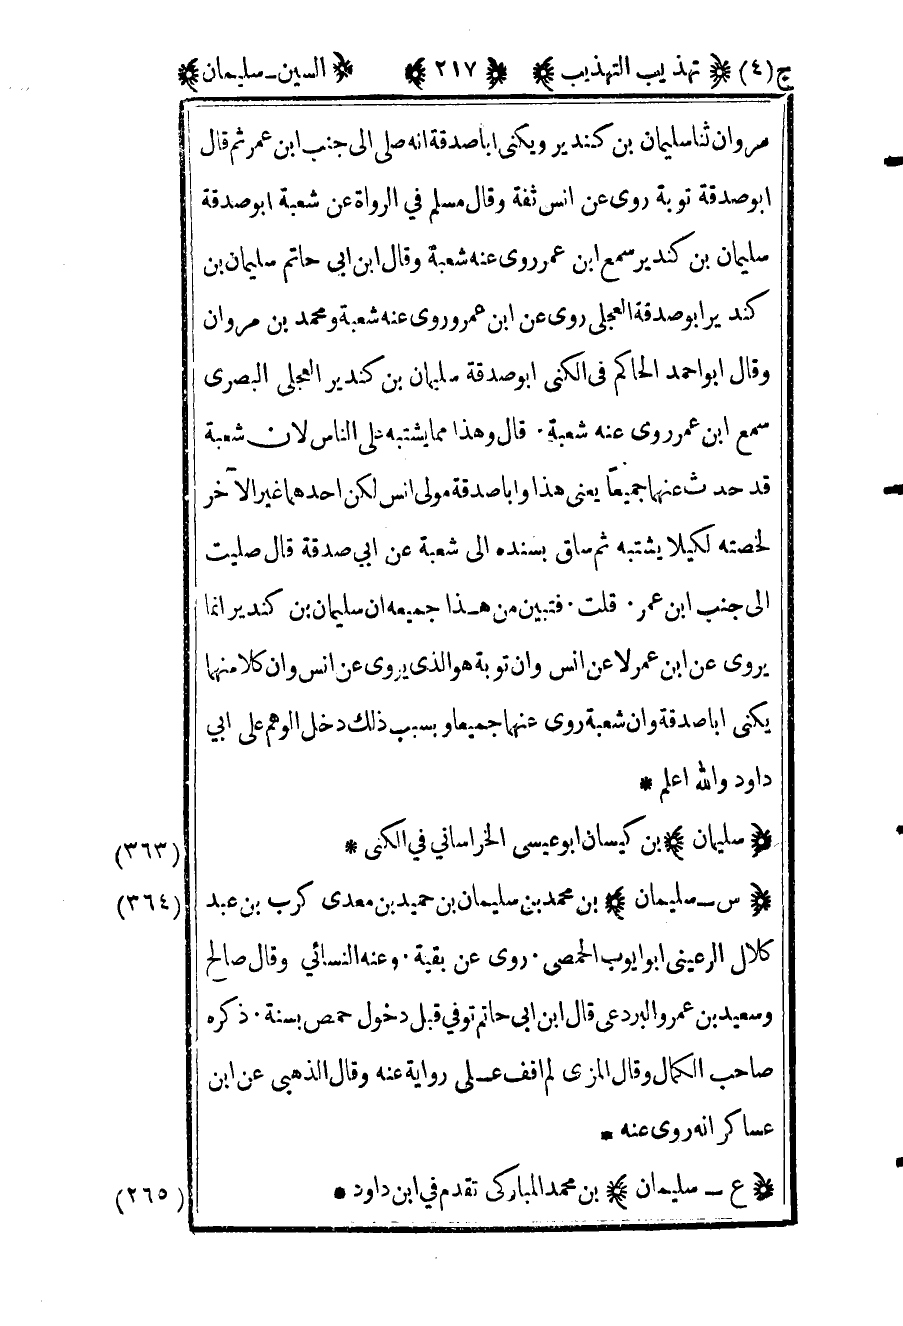 ج (٤) ﴿ تهذيب التهذيب ﴾ ﴿ ٢١٧ ﴾ ﴿ السين ـ سليمان ﴾
مروان ثنا سليمان بن كندير ويكنى ابا صدقة انه صلى الى جنب ابن عمر ثم قال
ابو صدقة توبة روى عن انس ثقة وقال مسلم في الرواة عن شعبة ابو صدقة
سليمان بن كندير سمع ابن عمر روى عنه شعبة وقال ابن ابي حاتم سليمان بن
كندير ابو صدقة العجلي روى عن ابن عمر وروى عنه شعبة ومحمد بن مروان
وقال ابو احمد الحاكم في الكنى ابو صدقة سليمان بن كندير العجلي البصرى
سمع ابن عمر روى عنه شعبة ٠ قال وهذا مما يشتبه على الناس لان شعبة
قد حدث عنهما جميعاً يعنى هذا وابا صدقة مولى انس لكن احدهما غير الآخر
لخصته لكيلا يشتبه ثم ساق بسنده الى شعبة عن ابي صدقة قال صليت
الى جنب ابن عمر ٠ قلت ٠ فتبين من هـذا جميعه ان سليمان بن كندير انما
يروى عن ابن عمر لا عن انس وان توبة هو الذى يروى عن انس وان كلا منهما
يكنى ابا صدقة وان شعبة روى عنهما جميعا وبسبب ذلك دخل الوهم على ابي
داود والله اعلم *
﴿ سليمان ﴾ بن كيسان ابو عيسى الخراساني في الكنى * (٣٦٣)
﴿ س ـ سليمان ﴾ بن محمد بن سليمان بن حميد بن معدى كرب بن عبد (٣٦٤)
كلال الرعينى ابو ايوب الحمصي ٠ روى عن بقية ٠ وعنه النسائي وقال صالح
وسعيد بن عمرو البردعى قال ابن ابى حاتم توفي قبل دخول حمص بسنة ٠ ذكره
صاحب الكمال وقال المزى لم اقف عـلى رواية عنه وقال الذهبي عن ابن
عساكر انه روى عنه *
﴿ ع ـ سليمان ﴾ بن محمد المباركى تقدم في ابن داود * (٢٦٥)